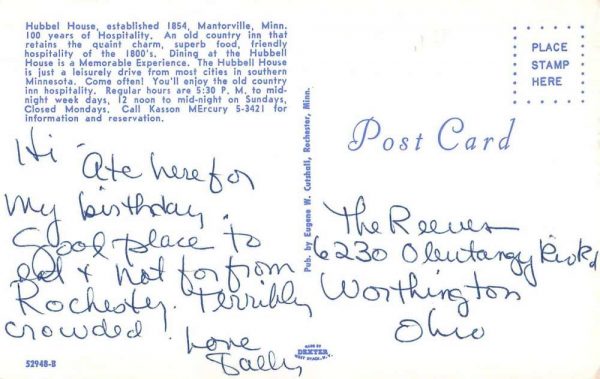 Hubbel House, established 1854, Mantorville, Minn.
100 years of Hospitality. An old country inn that
retains the quaint charm, superb food, friendly
hospitality of the 1800's. Dining at the Hubbell
House is a Memorable Experience. The Hubbell House
is just a leisurely drive from most cities in southern
Minnesota. Come often! You'll enjoy the old country
inn hospitality. Regular hours are 5:30 P. M. to mid-
night week days, 12 noon to mid-night on Sundays,
Closed Mondays. Call Kasson MErcury 5-3421 for
information and reservation.
Hi -
Ate here for
my birthday.
Good place to
eat & not far from
Rochester. Terribly
crowded!
Love
Sally
52948-B
Pub. by Eugene W. Cutshall, Rochester, Minn.
PLACE
STAMP
HERE
Post Card
The Reeves
6230 Olentangy Riv Rd
Worthington
Ohio
MADE BY
DEXTER
WEST NYACK, N.Y.